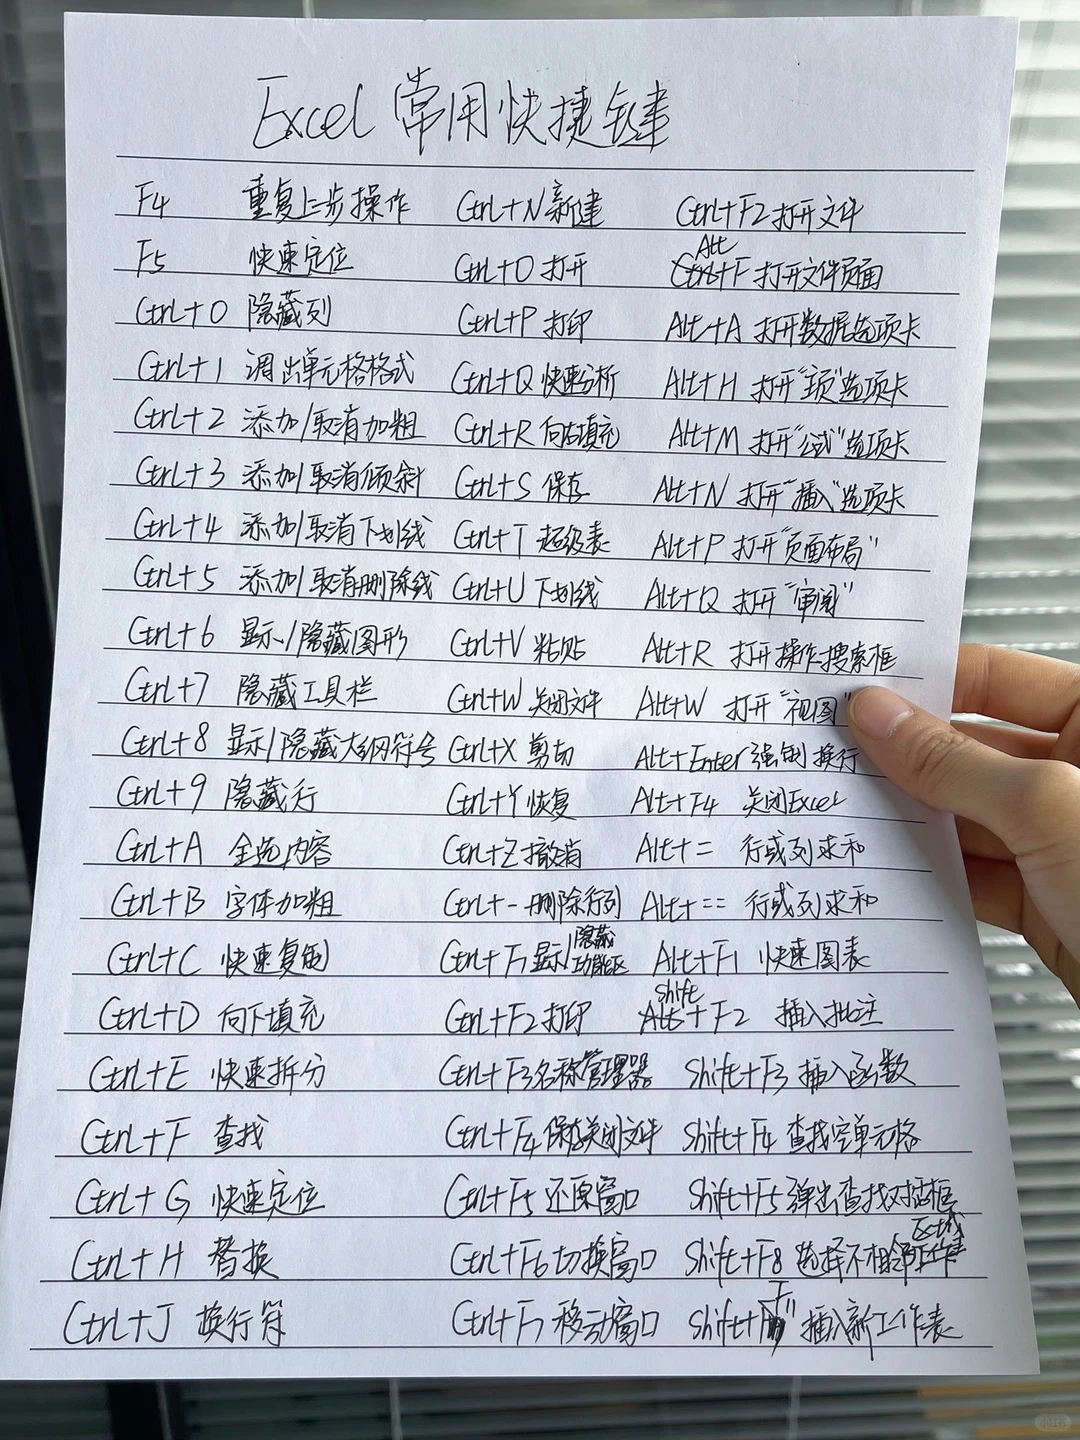 Excel 常用快捷键
F4 重复上步操作 Ctrl+N 新建 Ctrl+F2 打开文件
F5 快速定位 Ctrl+O 打开 Alt+F 打开文件页面
Ctrl+0 隐藏列 Ctrl+P 打印 Alt+A 打开数据选项卡
Ctrl+1 调出单元格格式 Ctrl+Q 快速分析 Alt+H 打开"项"选项卡
Ctrl+2 添加/取消加粗 Ctrl+R 向右填充 Alt+M 打开"公式"选项卡
Ctrl+3 添加/取消倾斜 Ctrl+S 保存 Alt+N 打开"插入"选项卡
Ctrl+4 添加/取消下划线 Ctrl+T 超级表 Alt+P 打开"页面布局"
Ctrl+5 添加/取消删除线 Ctrl+U 下划线 Alt+Q 打开"审阅"
Ctrl+6 显示/隐藏图形 Ctrl+V 粘贴 Alt+R 打开操作搜索框
Ctrl+7 隐藏工具栏 Ctrl+W 关闭文件 Alt+W 打开"视图"
Ctrl+8 显示/隐藏大纲符号 Ctrl+X 剪切 Alt+Enter 强制换行
Ctrl+9 隐藏行 Ctrl+Y 恢复 Alt+F4 关闭Excel
Ctrl+A 全选内容 Ctrl+Z 撤消 Alt+= 行或列求和
Ctrl+B 字体加粗 Ctrl+- 删除行列 Alt+== 行或列求和
Ctrl+C 快速复制 Ctrl+F1 显示/隐藏功能区 Alt+F1 快速图表
Ctrl+D 向下填充 Ctrl+F2 打印 Shift+F2 插入批注
Ctrl+E 快速拆分 Ctrl+F3 名称管理器 Shift+F3 插入函数
Ctrl+F 查找 Ctrl+F4 保存关闭文件 Shift+F4 查找空单元格
Ctrl+G 快速定位 Ctrl+F5 还原窗口 Shift+F5 弹出查找对话框
Ctrl+H 替换 Ctrl+F6 切换窗口 Shift+F8 选择不相邻工作表
Ctrl+J 换行符 Ctrl+F7 移动窗口 Shift+F11 插入新工作表
小红书